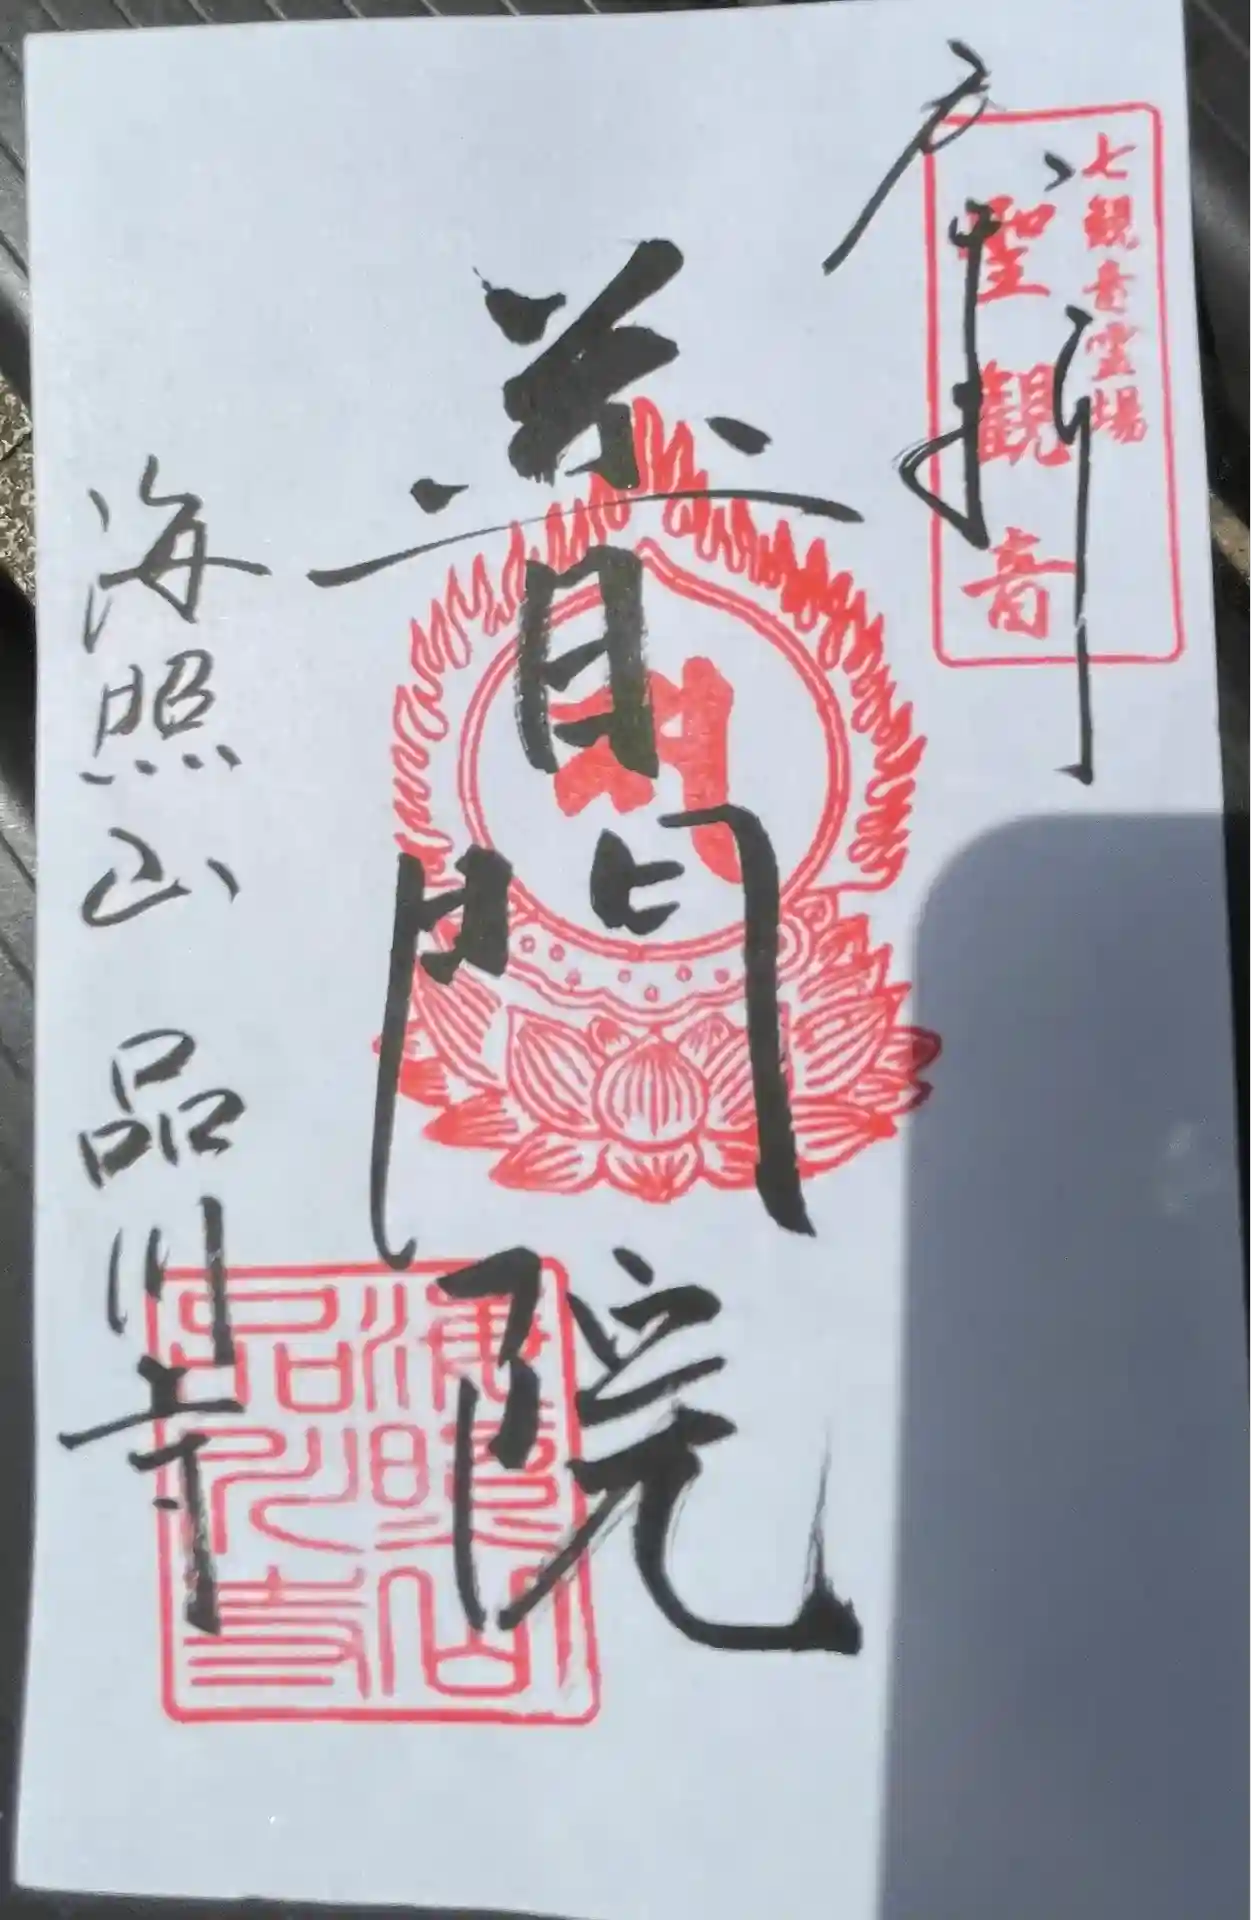 七観音霊場
聖観音
奉拝
普門院
海照山 品川寺
海照山
品川寺